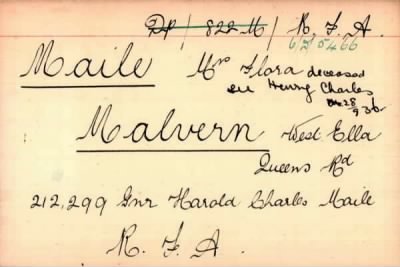 DP / 822 M / R. F. A.
6/5466
Maile Mrs Flora deceased
Henry Charles
28
936
Malvern West Ella
Queens Rd
212,299 Gnr Harold Charles Maile
R. F. A.